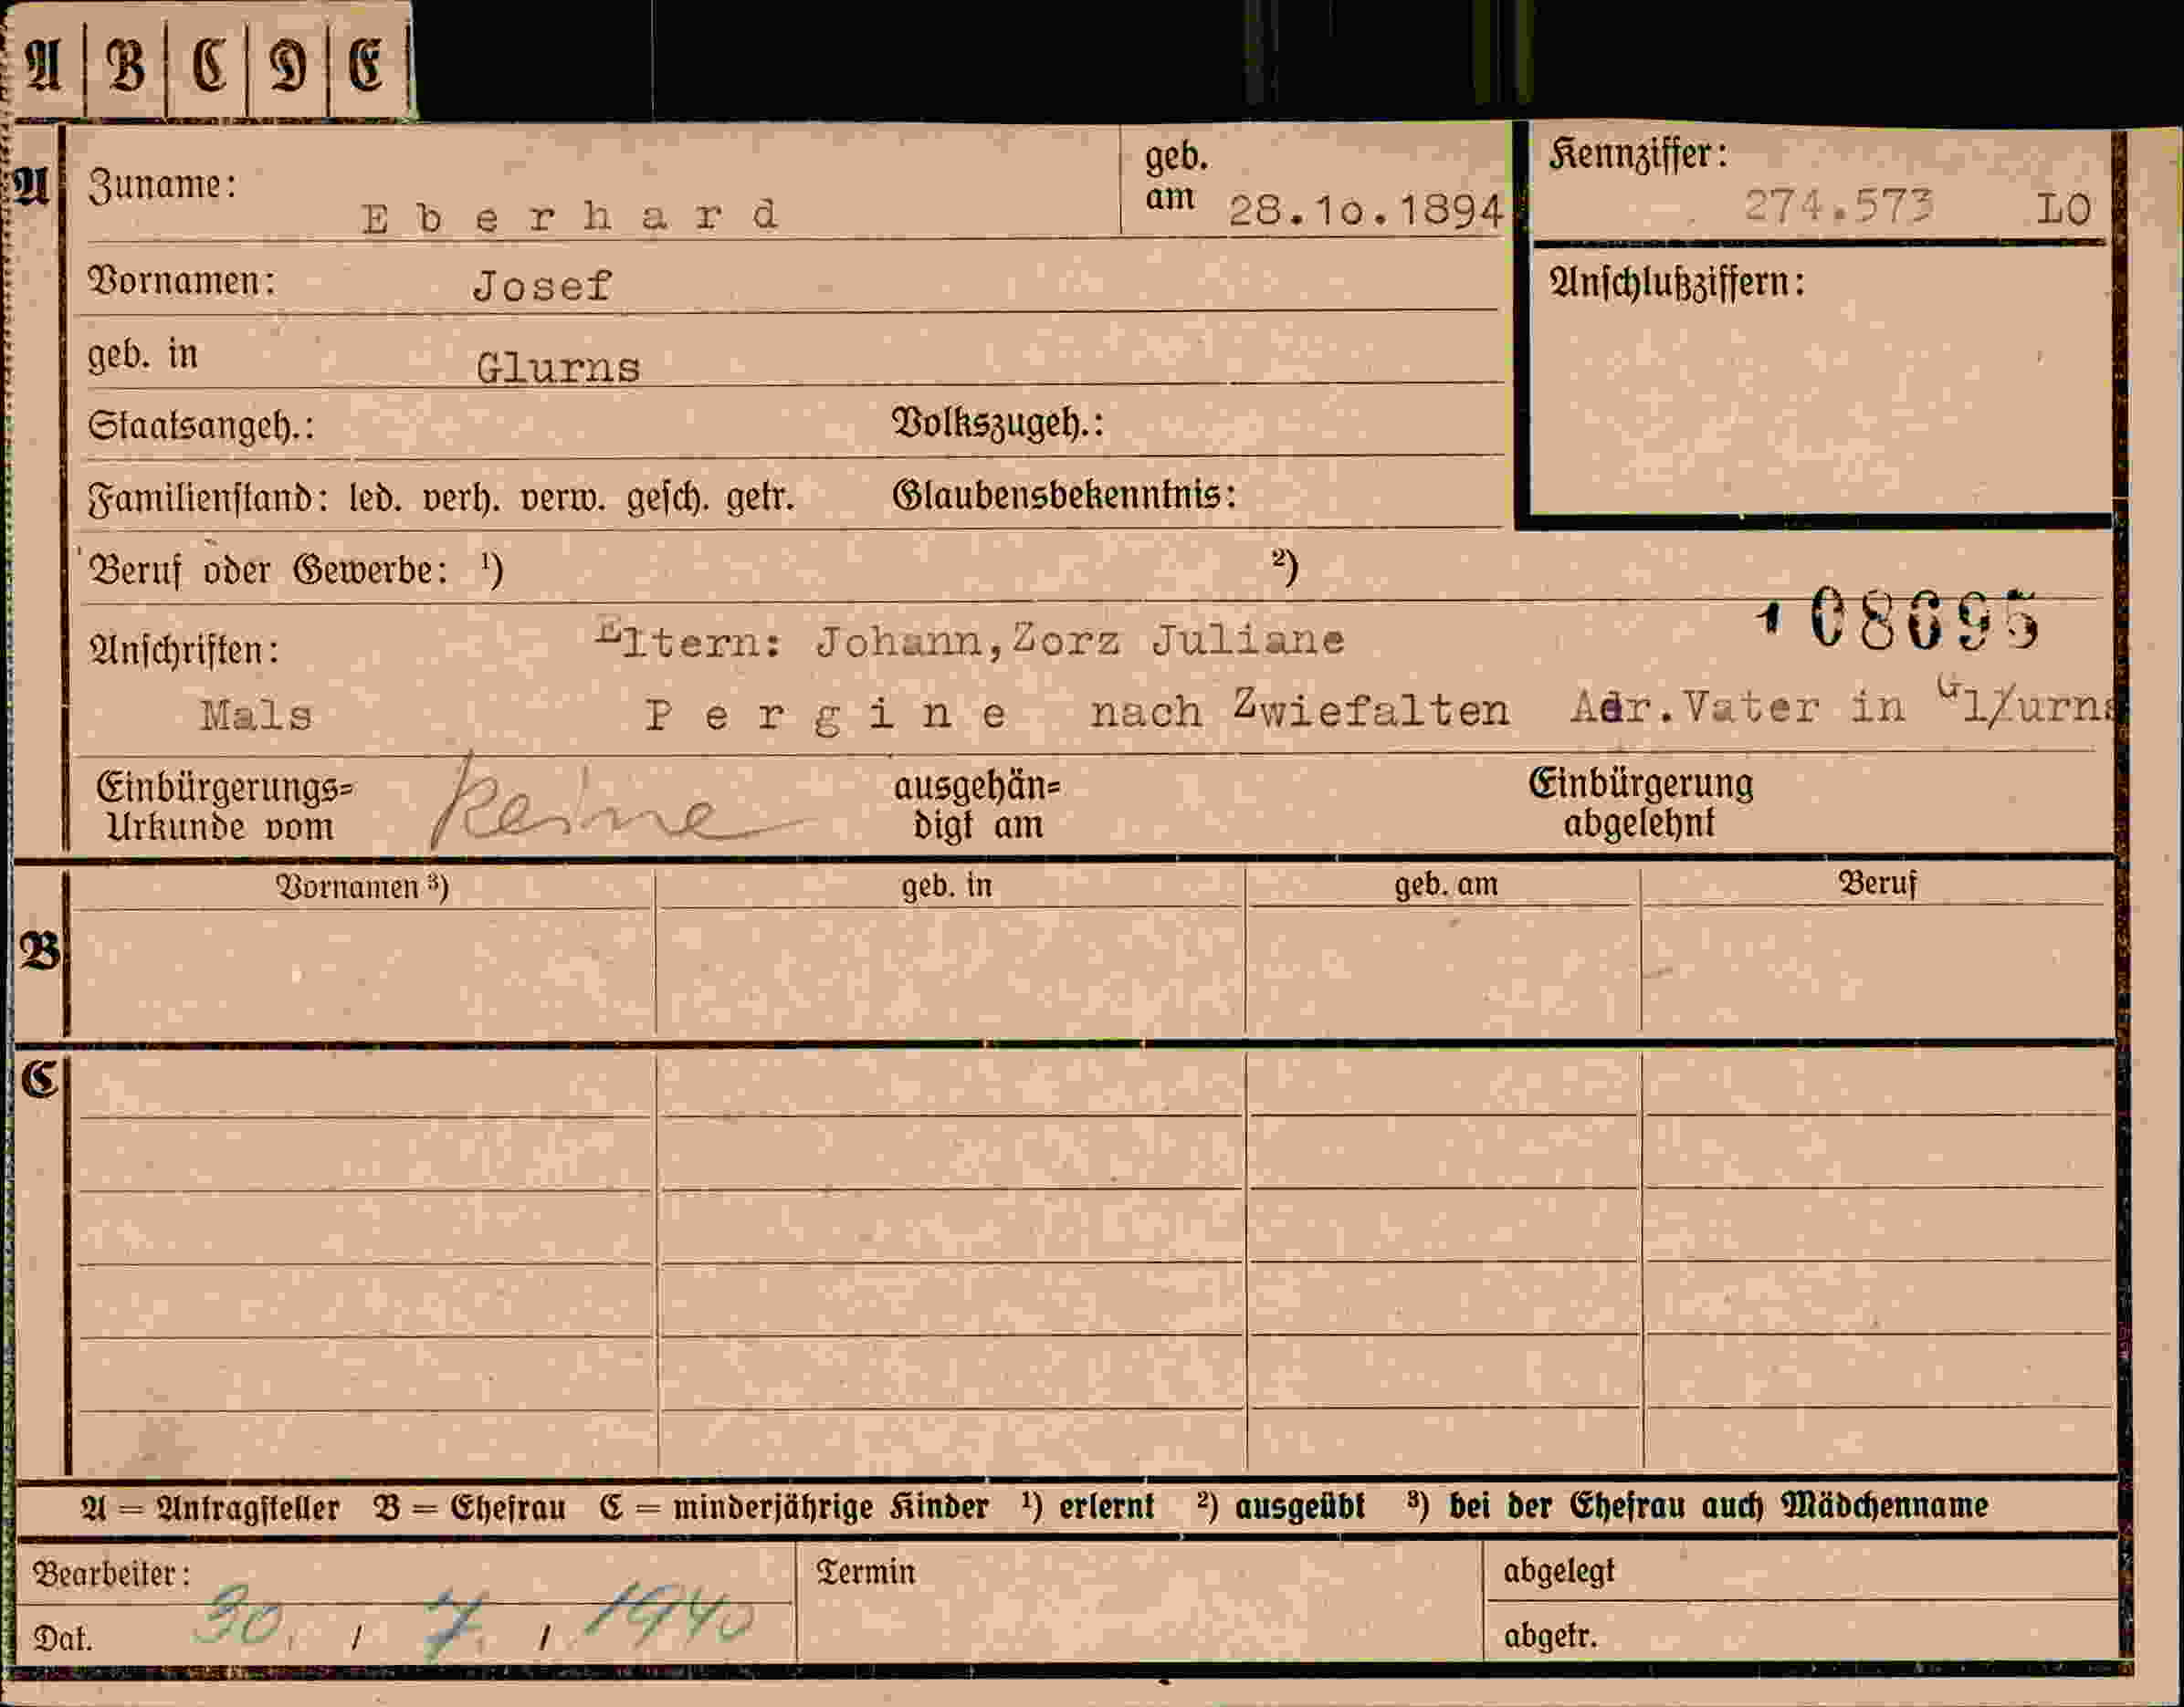 A B C D E
A Zuname: Eberhard geb. am 28.10.1894 Kennziffer: 274.573 LO
Vornamen: Josef Anschlußziffern:
geb. in Glurns
Staatsangeh.: Volkszugeh.:
Familienstand: led. verh. verw. gesch. getr. Glaubensbekenntnis:
Beruf oder Gewerbe: ¹) ²)
108695
Anschriften: Eltern: Johann,Zorz Juliane
Mals Pergine nach Zwiefalten Adr.Vater in Gl/urns
Einbürgerungs=Urkunde vom keine ausgehän=digt am Einbürgerung abgelehnt
B Vornamen ³) geb. in geb. am Beruf
C
A = Antragsteller B = Ehefrau C = minderjährige Kinder ¹) erlernt ²) ausgeübt ³) bei der Ehefrau auch Mädchenname
Bearbeiter: Termin abgelegt
Dat. 30. / 7. / 1940 abgetr.